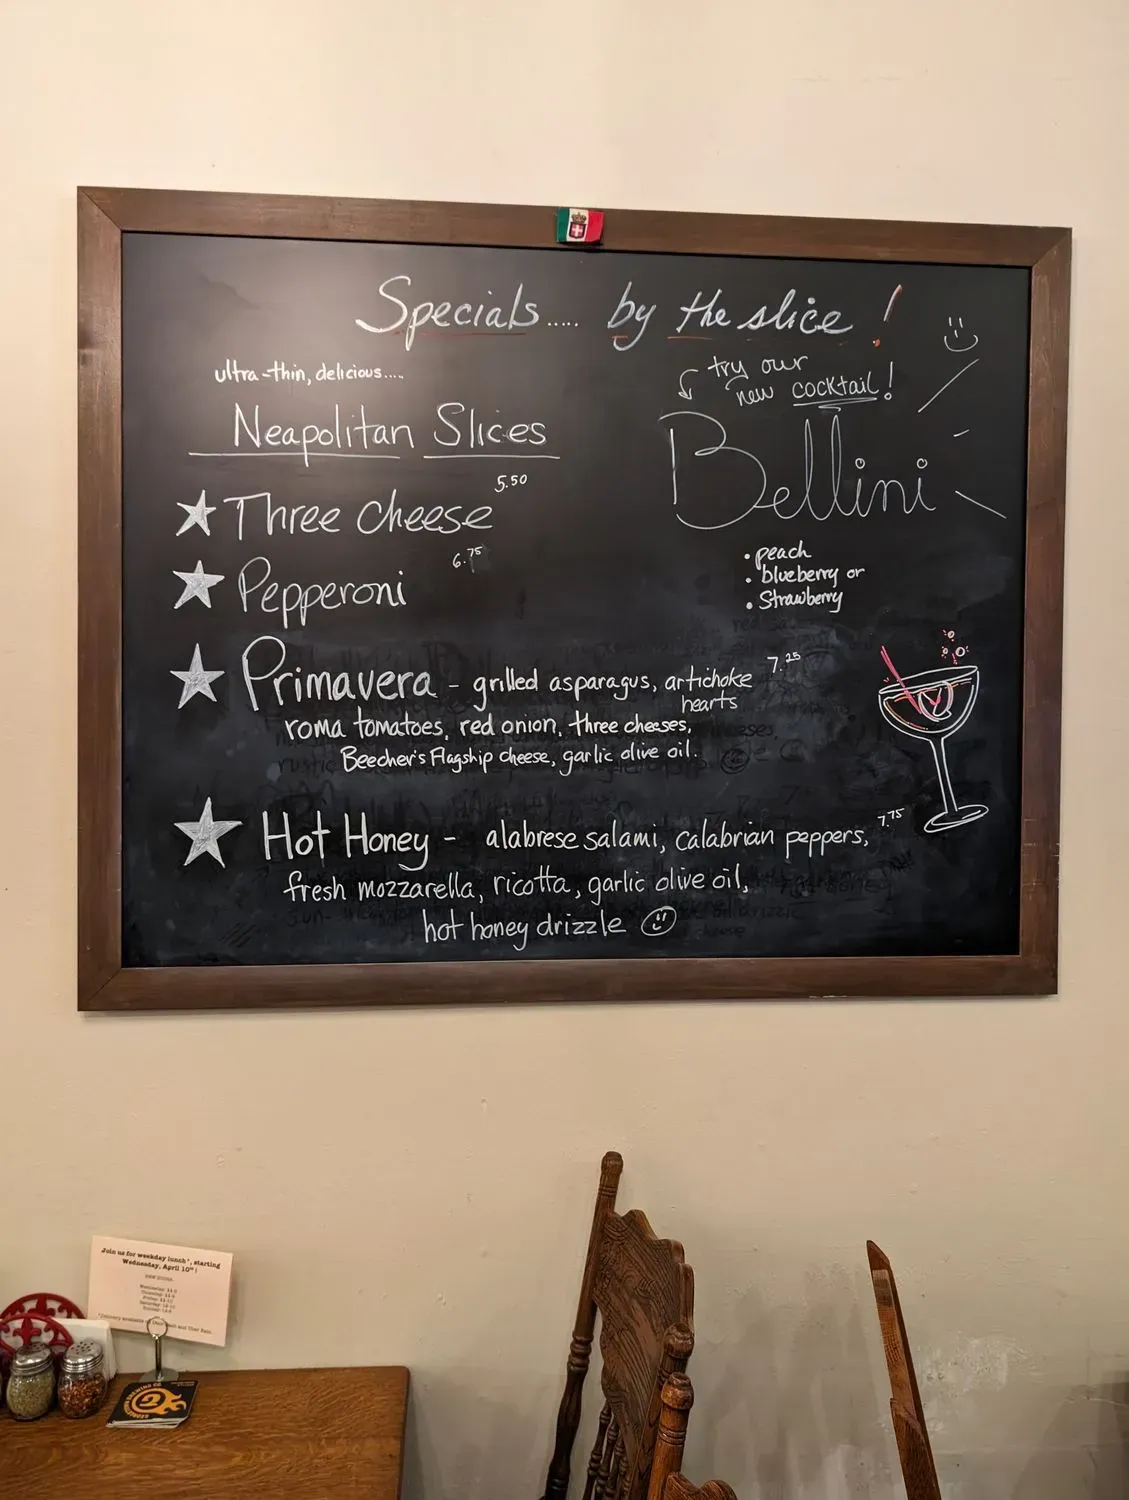 Specials..... by the slice!
ultra-thin, delicious.....
Neapolitan Slices
Three Cheese 5.50
Pepperoni 6.75
Primavera - grilled asparagus, artichoke hearts 7.25
roma tomatoes, red onion, three cheeses,
Beecher's Flagship cheese, garlic olive oil.
Hot Honey - alabrese salami, calabrian peppers, 7.75
fresh mozzarella, ricotta, garlic olive oil,
hot honey drizzle
try our
new cocktail!
Bellini
• peach
• blueberry or
• Strawberry
Join us for weekday lunch*, starting
Wednesday, April 10th!
2